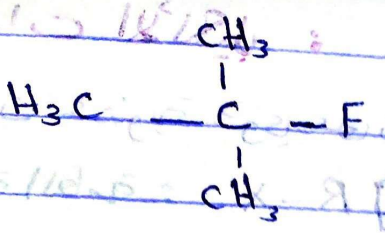 CH₃
|
H₃C — C — F
|
CH₃